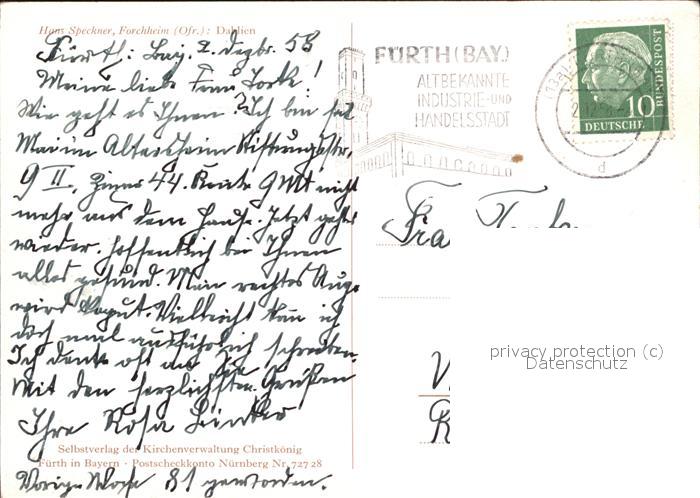 Hans Speckner, Forchheim (Ofr.): Dahlien
Fürth: Bay. 2. Dezbr. 58
Meine liebe Frau
Wie geht es Ihnen? Ich bin seit
Mai im Altersheim Stiftungsstr.
9 II, Zimmer 44. Konnte 9 Mt nicht
mehr aus dem Hause. Jetzt gehts
wieder. Hoffentlich bei Ihnen
alles gesund. Mein rechtes Auge
wird kaput. Vielleicht kann ich
doch mal ausführlich schreiben.
Ich denke oft an Sie
Mit den herzlichsten Grüßen
Ihre Rosa
Selbstverlag der Kirchenverwaltung Christkönig
Fürth in Bayern · Postscheckkonto Nürnberg Nr. 727 28
Vorige Woche 81 geworden.
FÜRTH (BAY.)
ALTBEKANNTE
INDUSTRIE-UND
HANDELSSTADT
DEUTSCHE BUNDESPOST
10
d
privacy protection (c)
Datenschutz